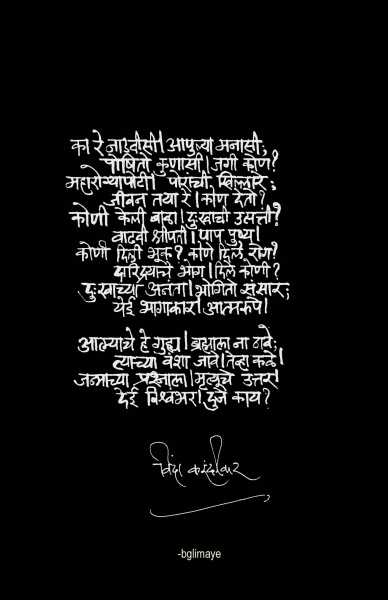 का रे नाडवीसी। आपुल्या मनासी;
पोषितो कुणासी। जगी कोण?
महारोग्यापोटी। पोरांची खिल्लारे;
जीवन तया रे। कोण देतो?
कोणी केली बाबा। दुःखाची उत्पत्ती?
वाटवी श्रीपती। पाप पुण्य।
कोणी दिली भूक? कोणे दिले रोग?
दारिद्र्याचे भोग। दिले कोणी?
दुःखाच्या अनंता। भोगितो संसार;
येई भागाकार। आत्मरूपे।
आत्म्याचे हे गुह्य। ब्रह्माला ना ठावे;
त्याच्या वंशा जावे। तेव्हा कळे।
जन्माच्या प्रश्नाला। मृत्यूचे उत्तर।
देई विश्वंभर। दुजे काय?
विंदा करंदीकर
-bglimaye